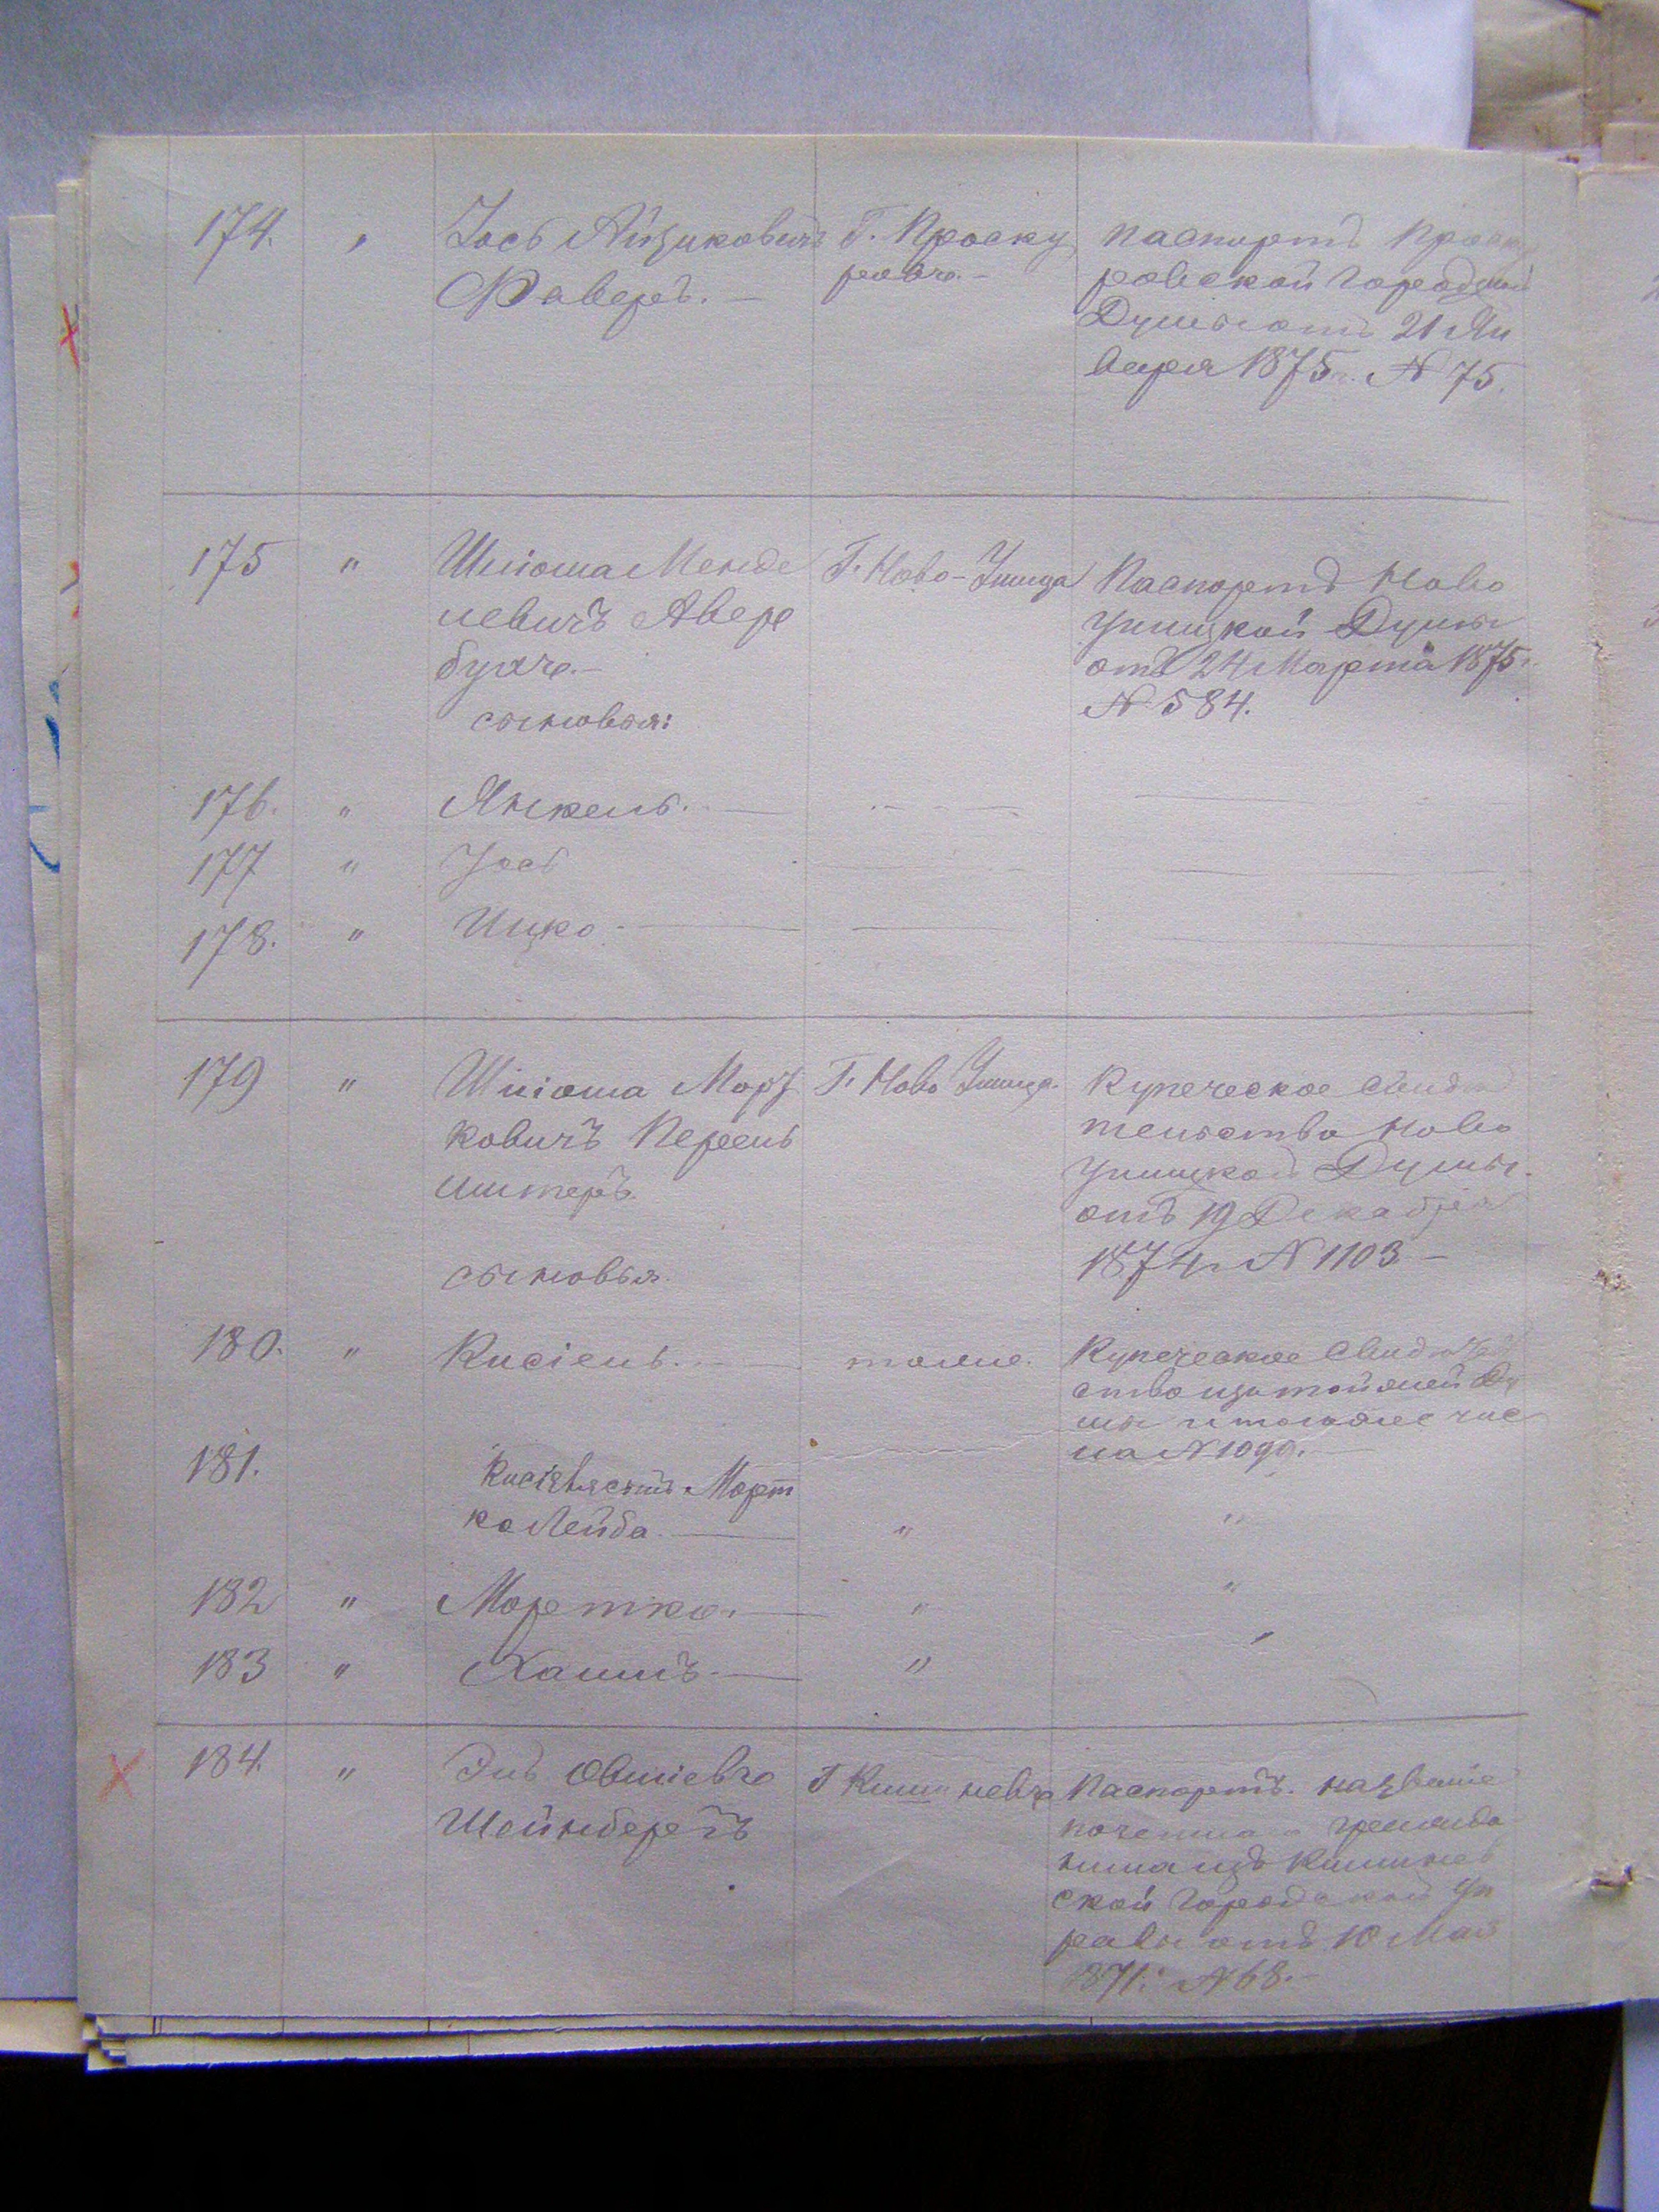 174. " Іось Айзиковичъ Г. Проску
Фаверъ. — ровъ. —
паспортъ Проску
ровской Городской
Думы отъ 21 Ян
варя 1875 г. N 75.
175 " Шліома Менде Г. Ново-Ушица
левичъ Авер
бухъ. —
сыновья:
Паспортъ Ново
Ушицкой Думы
отъ 24 Марта 1875 г.
N 584.
176. " Янкель. —
177 " Іось
178. " Ицко —
179 " Шліома Морд Г. Ново Ушица.
ковичъ Перель
штеръ.
сыновья.
Купеческое Свидѣ
тельство Ново
Ушицкой Думы
отъ 19 Декабря
1874 г. N 1103 —
180. " Кисіель. — тоже.
Купеческое Свидѣтель
ство изъ той же Ду
мы и того же чис
ла N 1090. —
181. Кисіеля сынъ Морт
ко Лейба. — " "
182 " Мортко. — " "
183 " Хаимъ — " "
184. " Овшіевъ Г Кишиневъ
Шейнбергъ
Паспортъ. названіе
гражда
нина изъ Кишинев
ской Городской Уп
равы отъ 10 Мая
1871 г. N 68. —